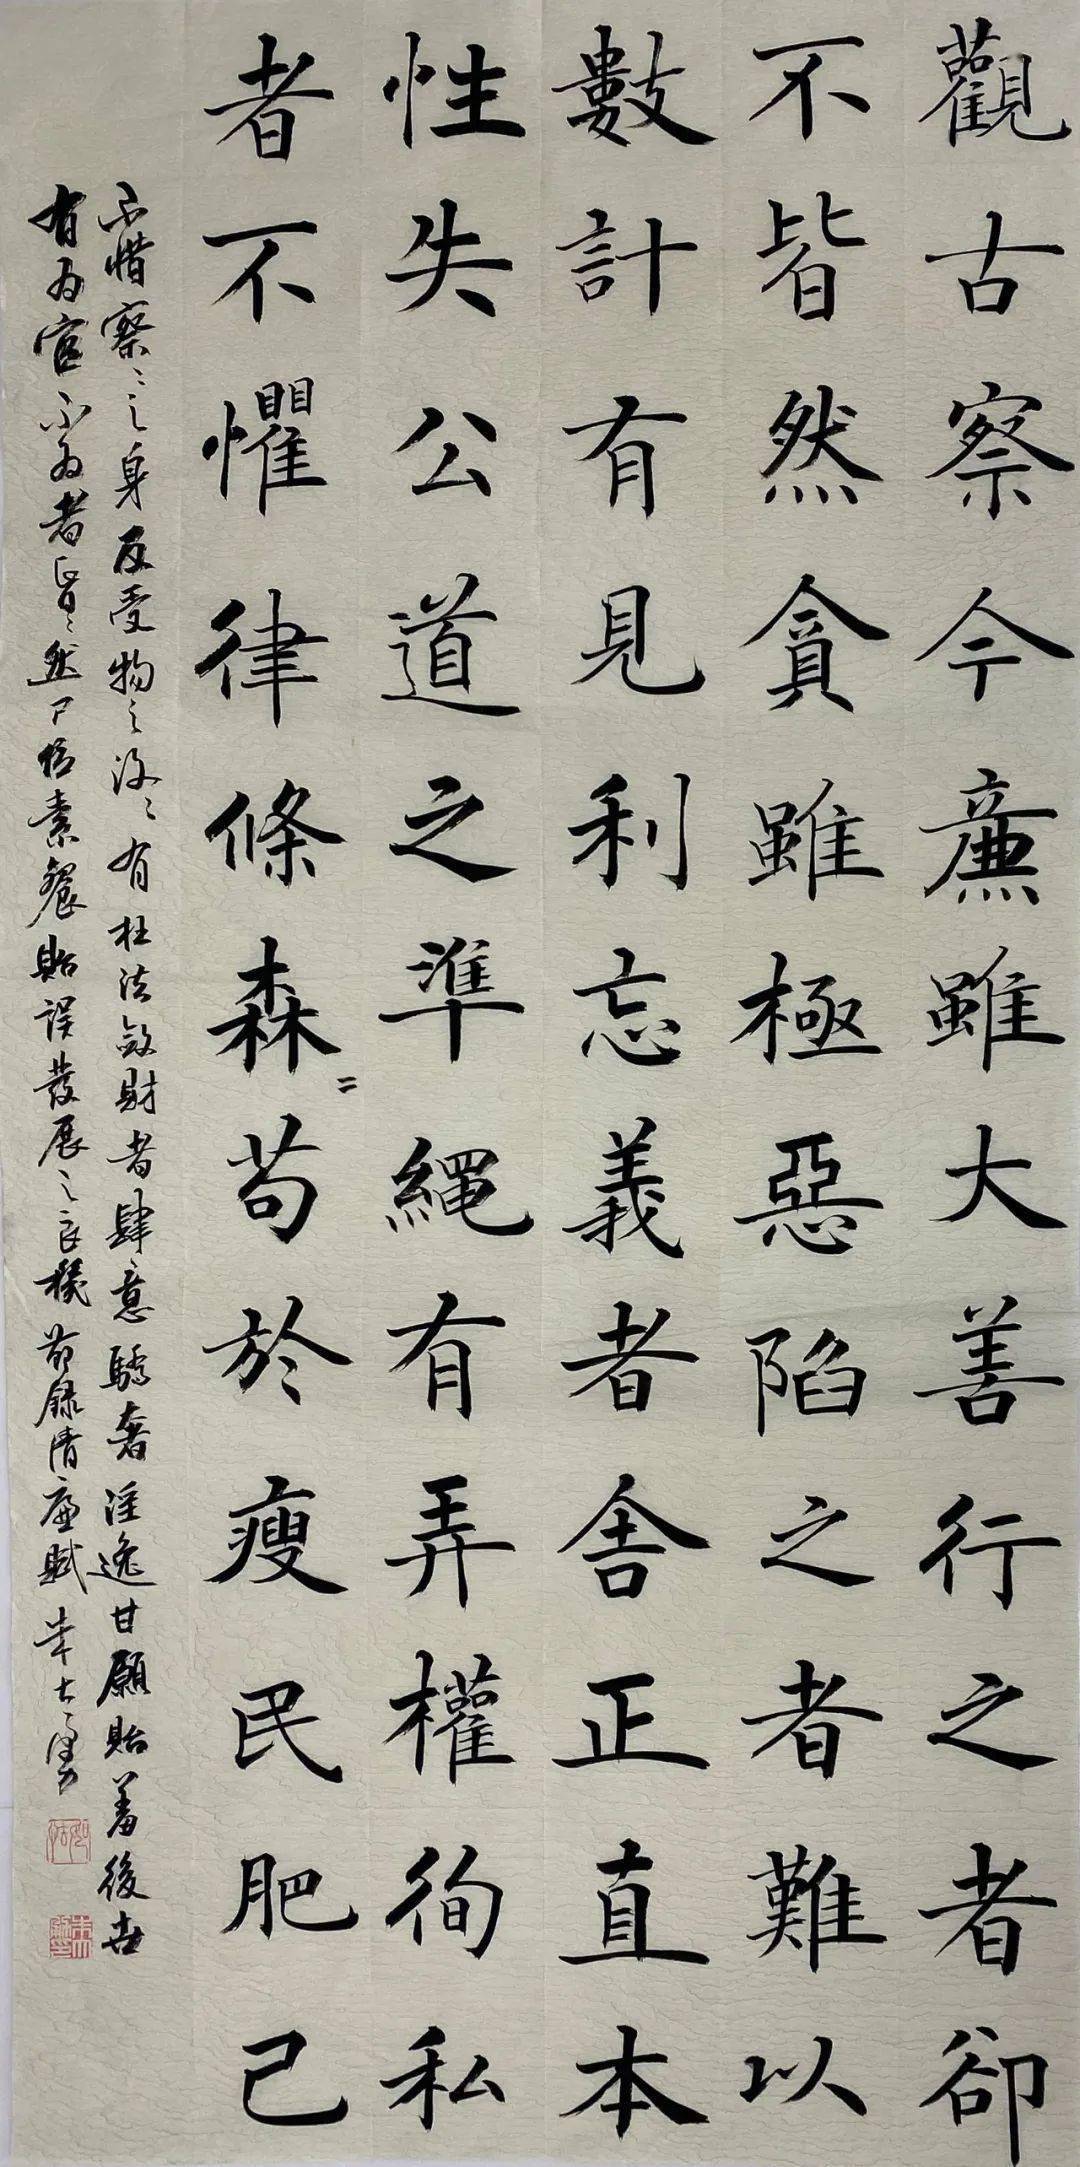 觀古察今廉雖大善行之者卻
不皆然貪雖極惡陷之者難以
數計有見利忘義者舍正直本
性失公道之準繩有弄權徇私
者不懼律條森〻苟於瘦民肥己
不惜察〻之身反受物之汶〻有枉法斂財者肆意驕奢淫逸甘願貽羞後世
有為官不為者皆〻然尸位素餐貽誤發展之良機 節錄清廉賦 朱士